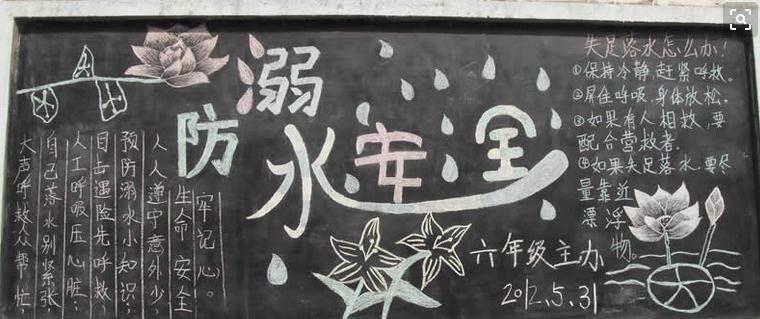 防溺水安全
大声呼救众帮忙,
自己落水别紧张,
人工呼吸压心脏;
目击遇险先呼救,
预防溺水小知识;
人人遵守意外少,
生命安全
牢记心。
失足落水怎么办!
①保持冷静,赶紧呼救。
②屏住呼吸,身体放松。
③如果有人相救,要
配合营救者.
④如果失足落水,要尽
量靠近
漂浮物。
六年级主办
2012.5.31